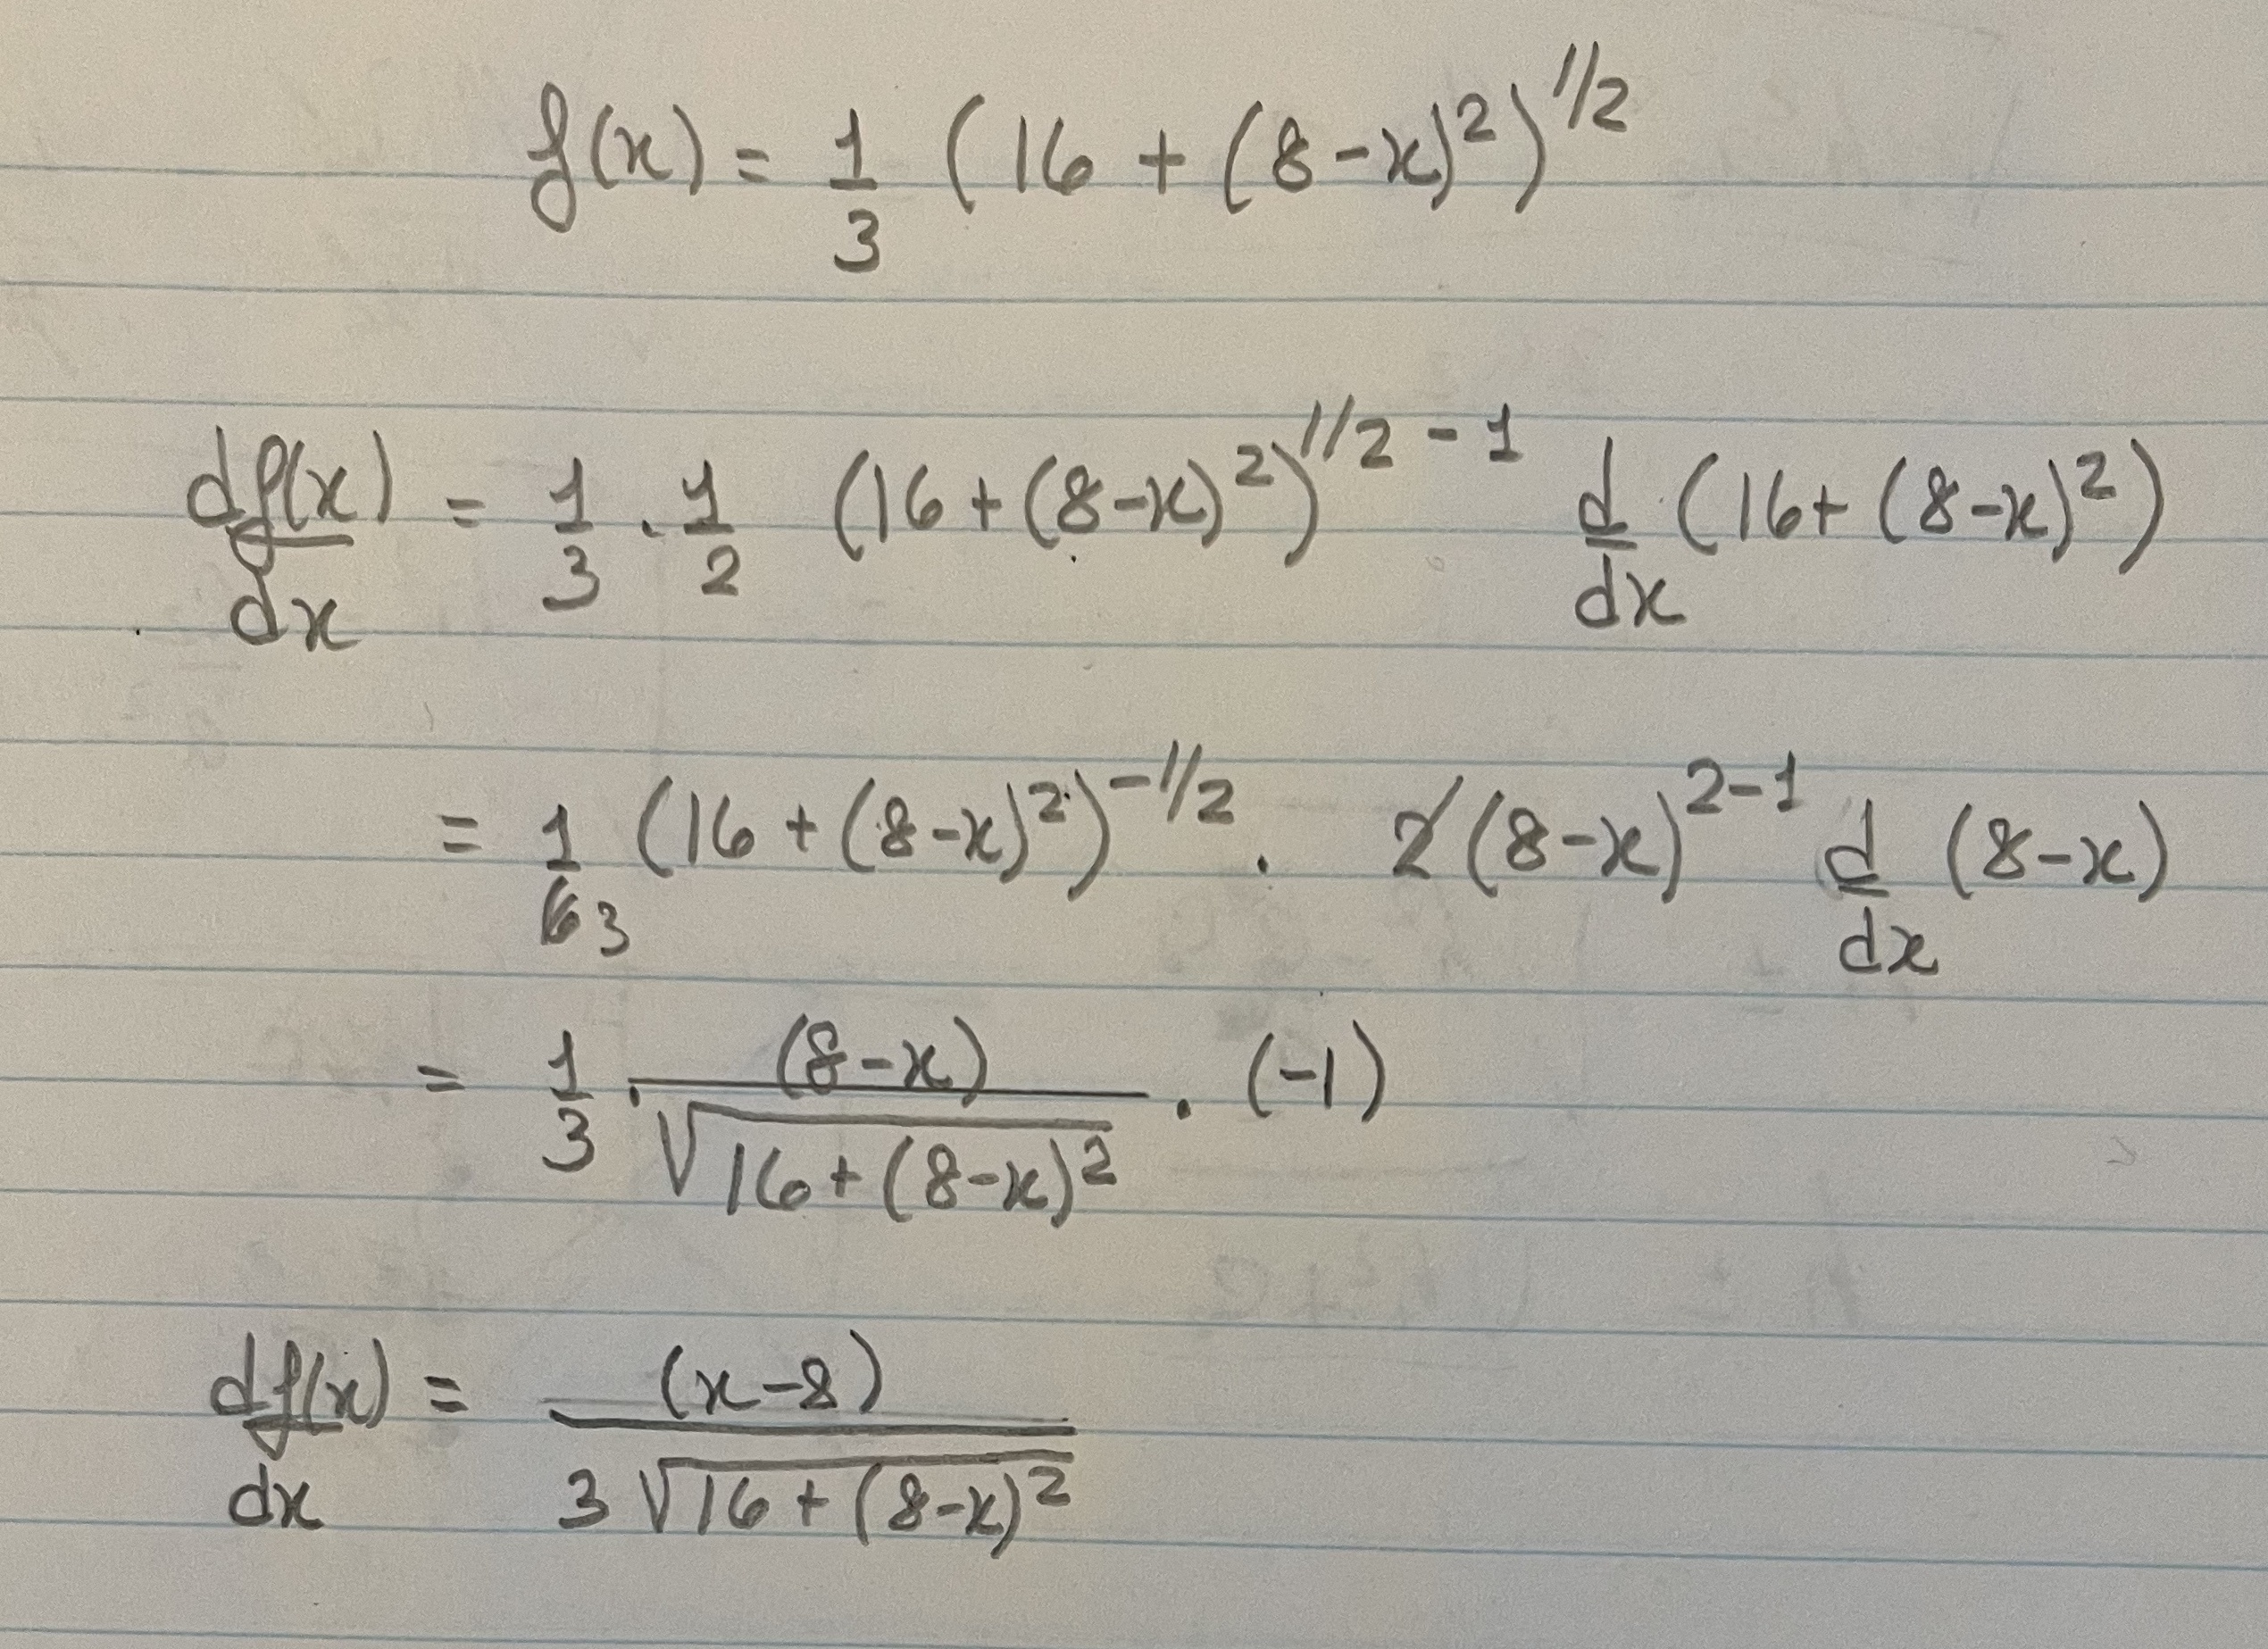 f(x) = 1/3 (16 + (8-x)²)^1/2
df(x)/dx = 1/3 . 1/2 (16 + (8-x)²)^1/2 - 1 d/dx (16 + (8-x)²)
= 1/6 3 (16 + (8-x)²)^-1/2 . 2(8-x)^2-1 d/dx (8-x)
= 1/3 . (8-x)/√(16 + (8-x)²) . (-1)
df(x)/dx = (x-8)/3√(16 + (8-x)²)